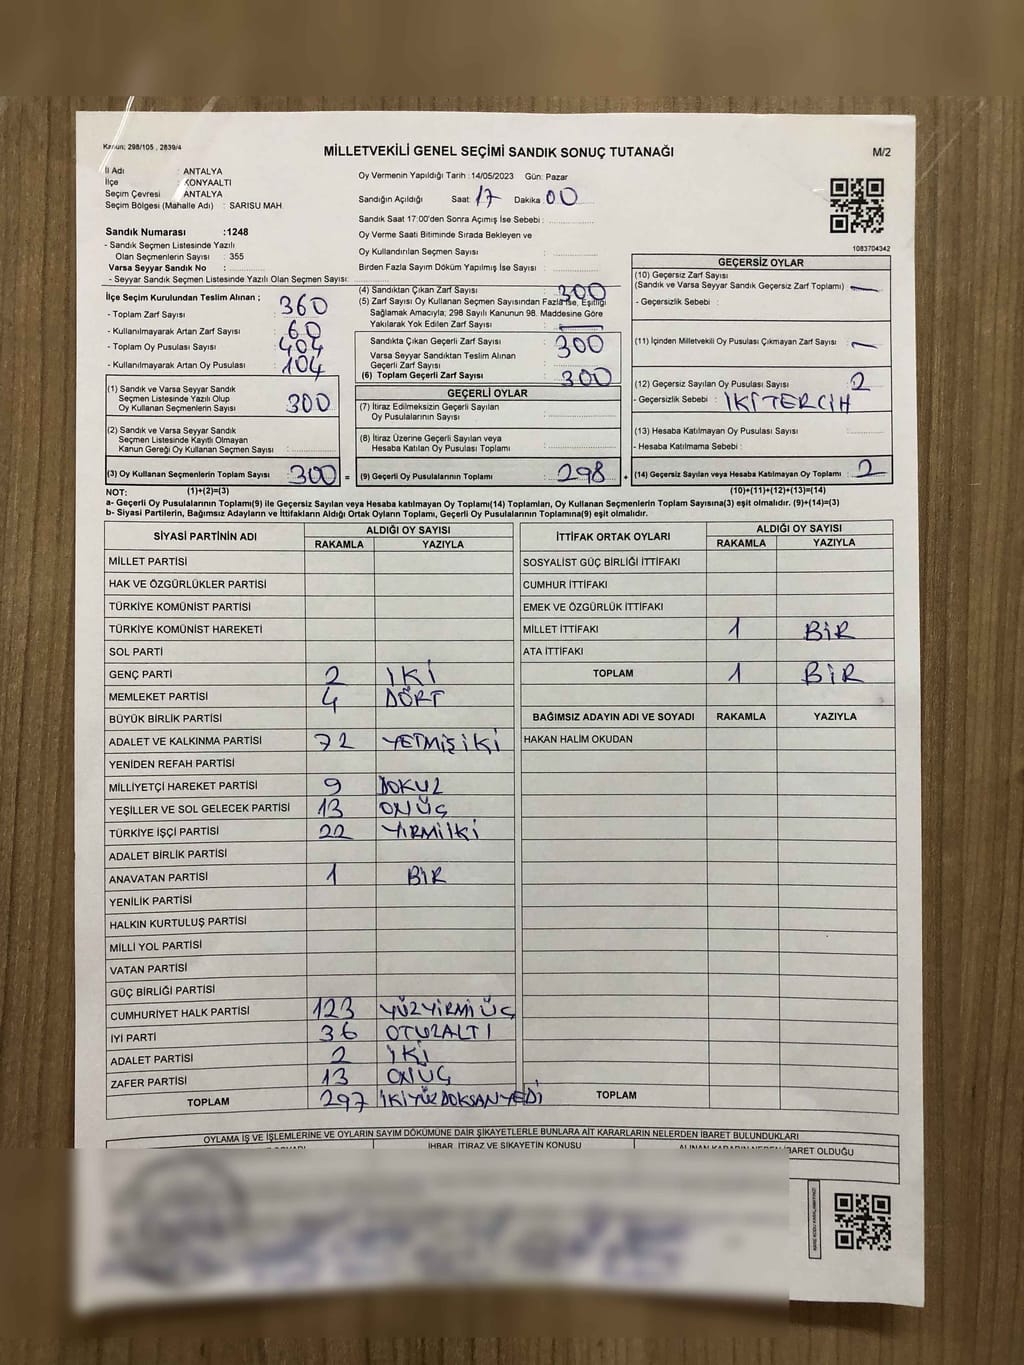 Kanun: 298/105 , 2839/4
MİLLETVEKİLİ GENEL SEÇİMİ SANDIK SONUÇ TUTANAĞI
M/2
İl Adı : ANTALYA
İlçe : KONYAALTI
Seçim Çevresi : ANTALYA
Seçim Bölgesi (Mahalle Adı) : SARISU MAH
Oy Vermenin Yapıldığı Tarih :14/05/2023 Gün: Pazar
Sandığın Açıldığı Saat: 17 Dakika: 00
Sandık Saat 17:00'den Sonra Açımış İse Sebebi :
Oy Verme Saati Bitiminde Sırada Bekleyen ve
Oy Kullandırılan Seçmen Sayısı :
Birden Fazla Sayım Döküm Yapılmış İse Sayısı :
1083704342
Sandık Numarası :1248
- Sandık Seçmen Listesinde Yazılı
Olan Seçmenlerin Sayısı : 355
Varsa Seyyar Sandık No :
- Seyyar Sandık Seçmen Listesinde Yazılı Olan Seçmen Sayısı:
İlçe Seçim Kurulundan Teslim Alınan ;
- Toplam Zarf Sayısı : 360
- Kullanılmayarak Artan Zarf Sayısı : 60
- Toplam Oy Pusulası Sayısı : 404
- Kullanılmayarak Artan Oy Pusulası : 104
(1) Sandık ve Varsa Seyyar Sandık
Seçmen Listesinde Yazılı Olup
Oy Kullanan Seçmenlerin Sayısı : 300
(2) Sandık ve Varsa Seyyar Sandık
Seçmen Listesinde Kayıtlı Olmayan
Kanun Gereği Oy Kullanan Seçmen Sayısı :
(3) Oy Kullanan Seçmenlerin Toplam Sayısı : 300 =
(4) Sandıktan Çıkan Zarf Sayısı : 300
(5) Zarf Sayısı Oy Kullanan Seçmen Sayısından Fazla ise, Eşitliği
Sağlamak Amacıyla; 298 Sayılı Kanunun 98. Maddesine Göre
Yakılarak Yok Edilen Zarf Sayısı : —
Sandıkta Çıkan Geçerli Zarf Sayısı : 300
Varsa Seyyar Sandıktan Teslim Alınan
Geçerli Zarf Sayısı :
(6) Toplam Geçerli Zarf Sayısı : 300
GEÇERLİ OYLAR
(7) İtiraz Edilmeksizin Geçerli Sayılan
Oy Pusulalarının Sayısı :
(8) İtiraz Üzerine Geçerli Sayılan veya
Hesaba Katılan Oy Pusulası Toplamı :
(9) Geçerli Oy Pusulalarının Toplamı : 298 +
GEÇERSİZ OYLAR
(10) Geçersiz Zarf Sayısı
(Sandık ve Varsa Seyyar Sandık Geçersiz Zarf Toplamı) : —
- Geçersizlik Sebebi :
(11) İçinden Milletvekili Oy Pusulası Çıkmayan Zarf Sayısı : —
(12) Geçersiz Sayılan Oy Pusulası Sayısı : 2
- Geçersizlik Sebebi : İKİ TERCİH
(13) Hesaba Katılmayan Oy Pusulası Sayısı :
- Hesaba Katılmama Sebebi :
(14) Geçersiz Sayılan veya Hesaba Katılmayan Oy Toplamı : 2
NOT: (1)+(2)=(3) (10)+(11)+(12)+(13)=(14)
a- Geçerli Oy Pusulalarının Toplamı(9) ile Geçersiz Sayılan veya Hesaba katılmayan Oy Toplamı(14) Toplamları, Oy Kullanan Seçmenlerin Toplam Sayısına(3) eşit olmalıdır. (9)+(14)=(3)
b- Siyasi Partilerin, Bağımsız Adayların ve İttifakların Aldığı Ortak Oyların Toplamı, Geçerli Oy Pusulalarının Toplamına(9) eşit olmalıdır.
SİYASİ PARTİNİN ADI ALDIĞI OY SAYISI
RAKAMLA YAZIYLA
MİLLET PARTİSİ
HAK VE ÖZGÜRLÜKLER PARTİSİ
TÜRKİYE KOMÜNİST PARTİSİ
TÜRKİYE KOMÜNİST HAREKETİ
SOL PARTİ
GENÇ PARTİ 2 İKİ
MEMLEKET PARTİSİ 4 DÖRT
BÜYÜK BİRLİK PARTİSİ
ADALET VE KALKINMA PARTİSİ 72 YETMİŞİKİ
YENİDEN REFAH PARTİSİ
MİLLİYETÇİ HAREKET PARTİSİ 9 DOKUZ
YEŞİLLER VE SOL GELECEK PARTİSİ 13 ONÜÇ
TÜRKİYE İŞÇİ PARTİSİ 22 YİRMİİKİ
ADALET BİRLİK PARTİSİ
ANAVATAN PARTİSİ 1 BİR
YENİLİK PARTİSİ
HALKIN KURTULUŞ PARTİSİ
MİLLİ YOL PARTİSİ
VATAN PARTİSİ
GÜÇ BİRLİĞİ PARTİSİ
CUMHURİYET HALK PARTİSİ 123 YÜZYİRMİ ÜÇ
İYİ PARTİ 36 OTUZALTI
ADALET PARTİSİ 2 İKİ
ZAFER PARTİSİ 13 ONÜÇ
TOPLAM 297 İKİYÜZDOKSANYEDİ
İTTİFAK ORTAK OYLARI ALDIĞI OY SAYISI
RAKAMLA YAZIYLA
SOSYALİST GÜÇ BİRLİĞİ İTTİFAKI
CUMHUR İTTİFAKI
EMEK VE ÖZGÜRLÜK İTTİFAKI
MİLLET İTTİFAKI 1 BİR
ATA İTTİFAKI
TOPLAM 1 BİR
BAĞIMSIZ ADAYIN ADI VE SOYADI RAKAMLA YAZIYLA
HAKAN HALİM OKUDAN
TOPLAM
OYLAMA İŞ VE İŞLEMLERİNE VE OYLARIN SAYIM DÖKÜMÜNE DAİR ŞİKAYETLERLE BUNLARA AİT KARARLARIN NELERDEN İBARET BULUNDUKLARI
İHBAR, İTİRAZ VE ŞİKAYETİN KONUSU
İBARET OLDUĞU